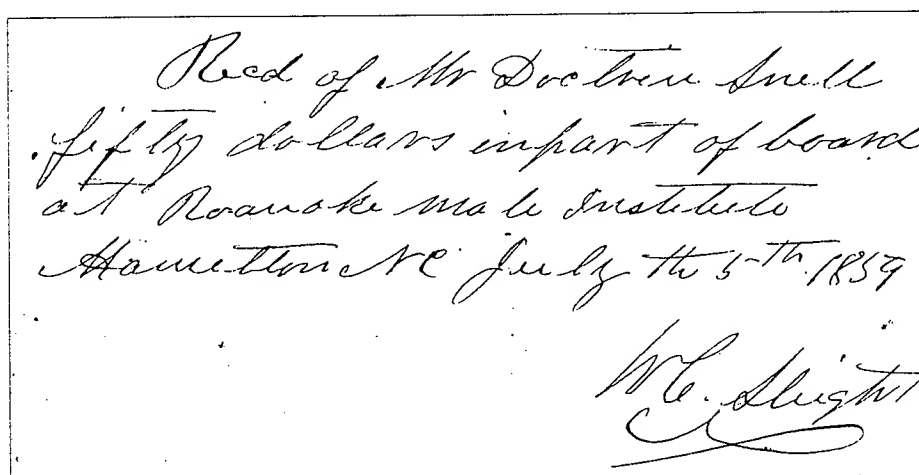 Recd of Mr Doctrin Snell
fifty dollars in part of board
at Roanoke male Institute
Hamilton NC July th 5th 1859
W C. Sleight